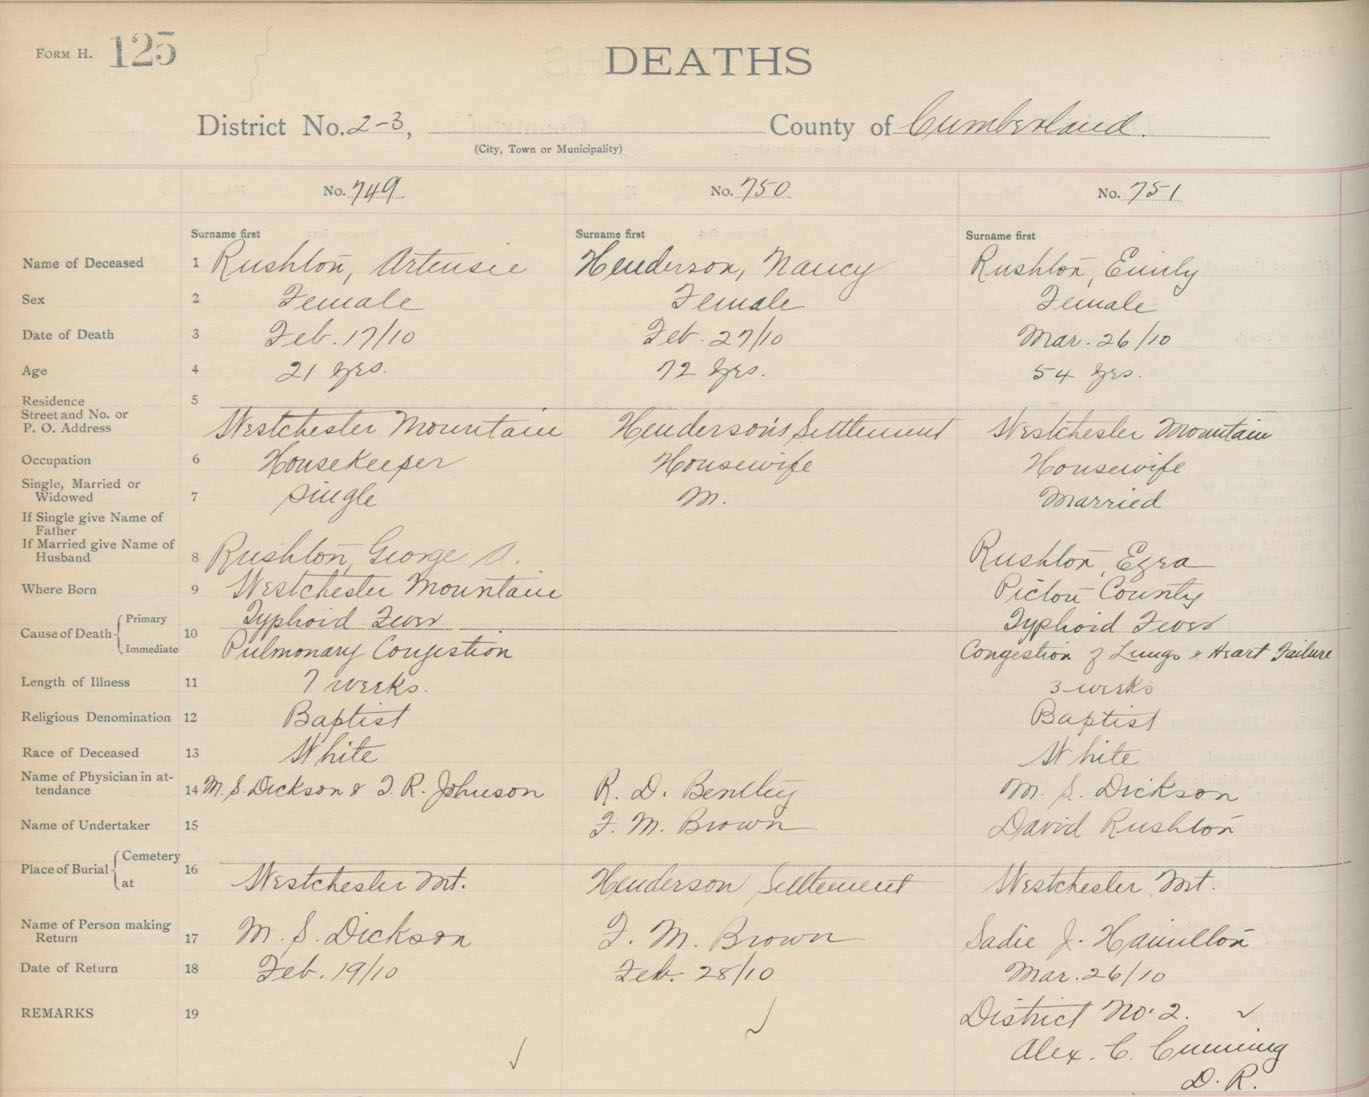 FORM H. 125
DEATHS
District No. 2-3, County of Cumberland.
(City, Town or Municipality)
No. 749 No. 750 No. 751
Surname first Surname first Surname first
Name of Deceased 1 Rushton, Artensie Henderson, Nancy Rushton, Emily
Sex 2 Female Female Female
Date of Death 3 Feb. 17/10 Feb. 27/10 Mar. 26/10
Age 4 21 yrs. 72 yrs. 54 yrs.
Residence 5
Street and No. or
P. O. Address Westchester Mountain Henderson's Settlement Westchester Mountain
Occupation 6 Housekeeper Housewife Housewife
Single, Married or
Widowed 7 Single M. Married
If Single give Name of
Father
If Married give Name of
Husband 8 Rushton, George Rushton, Ezra
Where Born 9 Westchester Mountain Pictou County
Cause of Death 10 Primary Typhoid Fever Typhoid Fever
Immediate Pulmonary Congestion Congestion of Lungs & Heart Failure
Length of Illness 11 7 weeks. 3 weeks
Religious Denomination 12 Baptist Baptist
Race of Deceased 13 White White
Name of Physician in at-
tendance 14 M. S. Dickson & T. R. Johnson R. D. Bentley M. S. Dickson
Name of Undertaker 15 F. M. Brown David Rushton
Place of Burial 16 Cemetery
at Westchester Mt. Henderson Settlement Westchester Mt.
Name of Person making
Return 17 M. S. Dickson F. M. Brown Sadie J. Hamilton
Date of Return 18 Feb. 19/10 Feb. 28/10 Mar. 26/10
REMARKS 19 District No. 2.
Alex. C. Cumming
D. R.